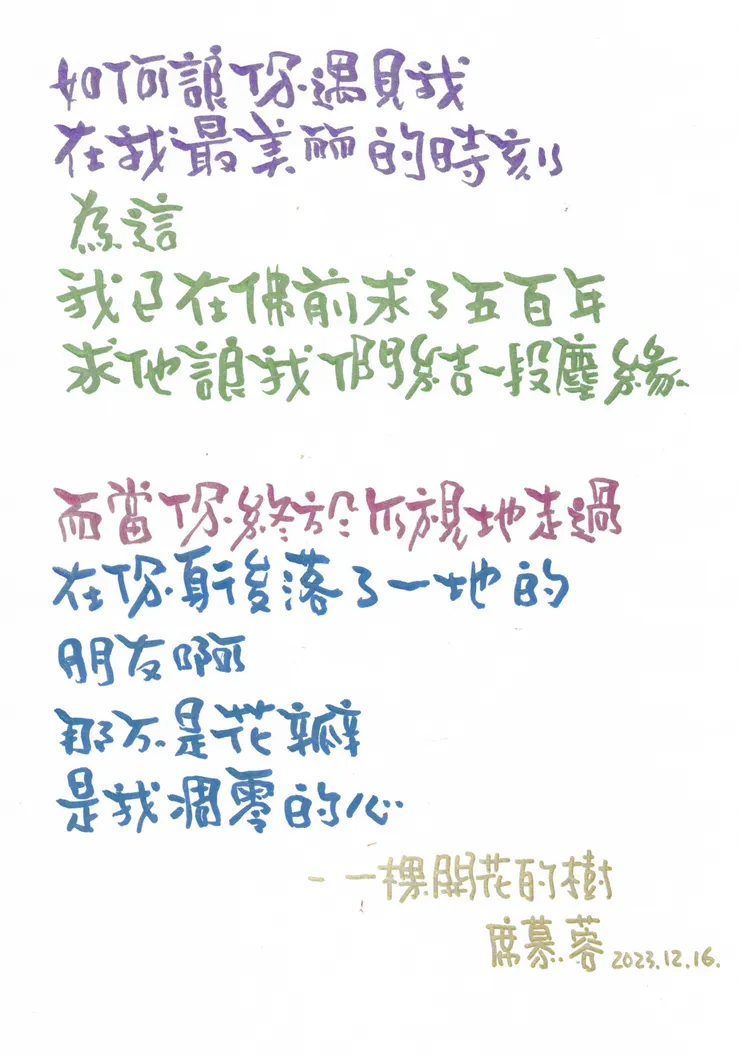 如何讓你遇見我
在我最美麗的時刻
為這
我已在佛前求了五百年
求他讓我們結一段塵緣
而當你終於無視地走過
在你身後落了一地的
朋友啊
那不是花瓣
是我凋零的心
- 一棵開花的樹
席慕蓉 2023.12.16.